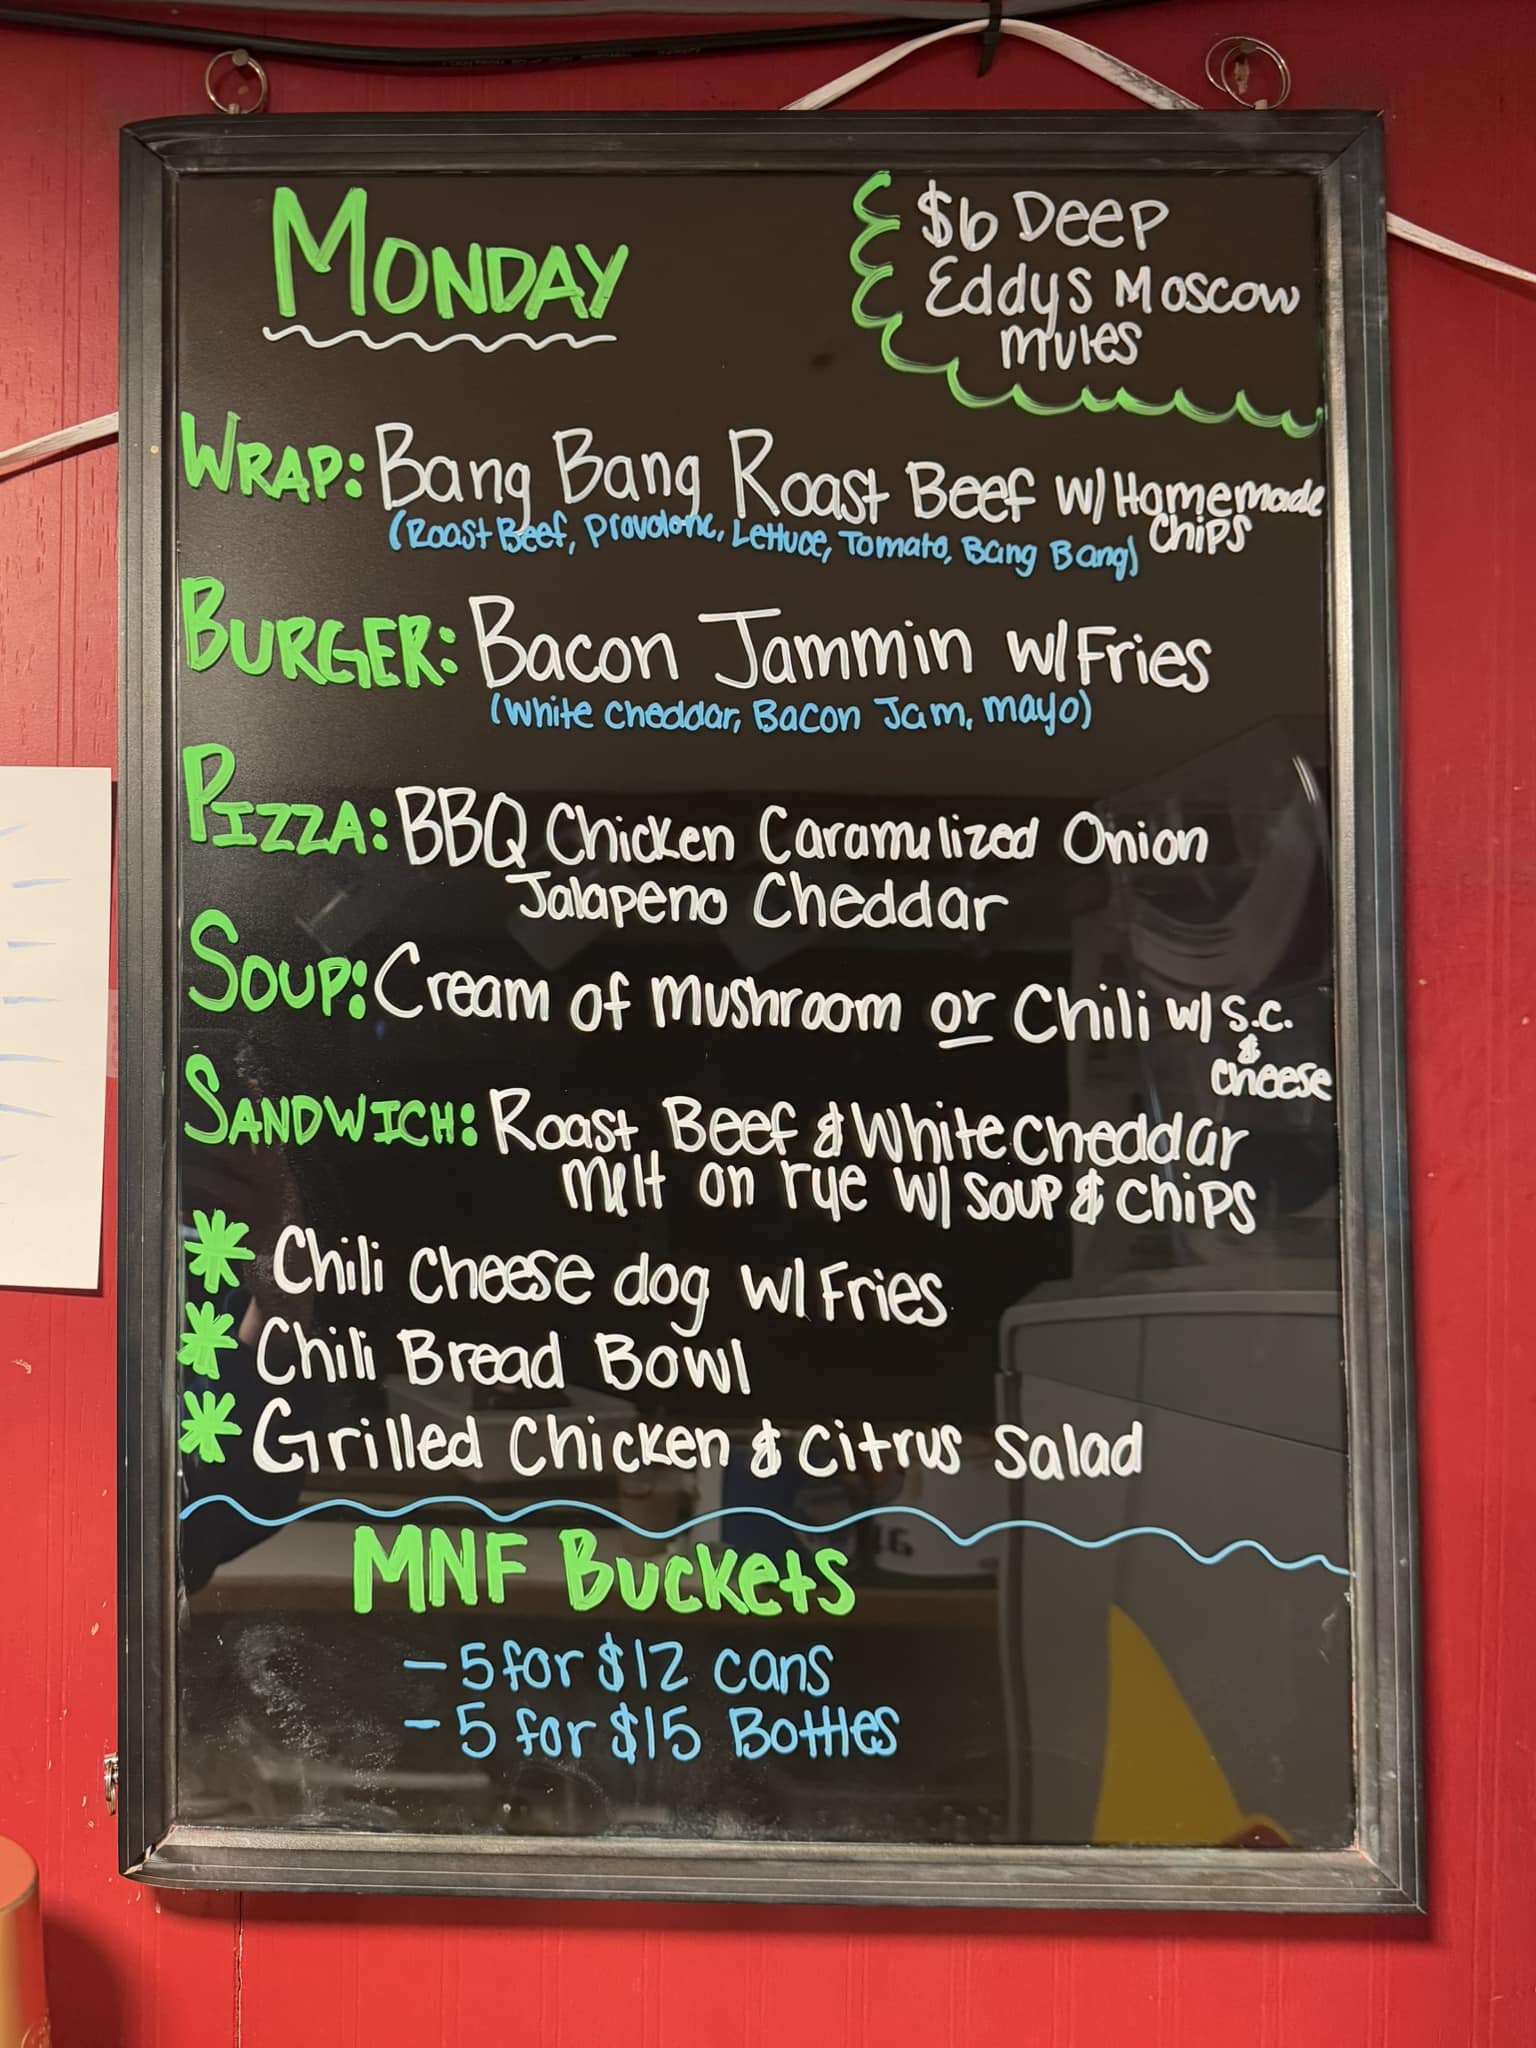 Monday
$6 Deep
Eddys Moscow
mules
Wrap: Bang Bang Roast Beef w/ Homemade
chips
(Roast Beef, Provolone, Lettuce, Tomato, Bang Bang)
Burger: Bacon Jammin w/ Fries
(White Cheddar, Bacon Jam, mayo)
Pizza: BBQ Chicken Caramelized Onion
Jalapeno Cheddar
Soup: Cream of mushroom or Chili w/ s.c.
&
cheese
Sandwich: Roast Beef & White Cheddar
melt on rye w/ soup & chips
* Chili Cheese dog w/ Fries
* Chili Bread Bowl
* Grilled Chicken & Citrus Salad
MNF Buckets
- 5 for $12 cans
- 5 for $15 Bottles